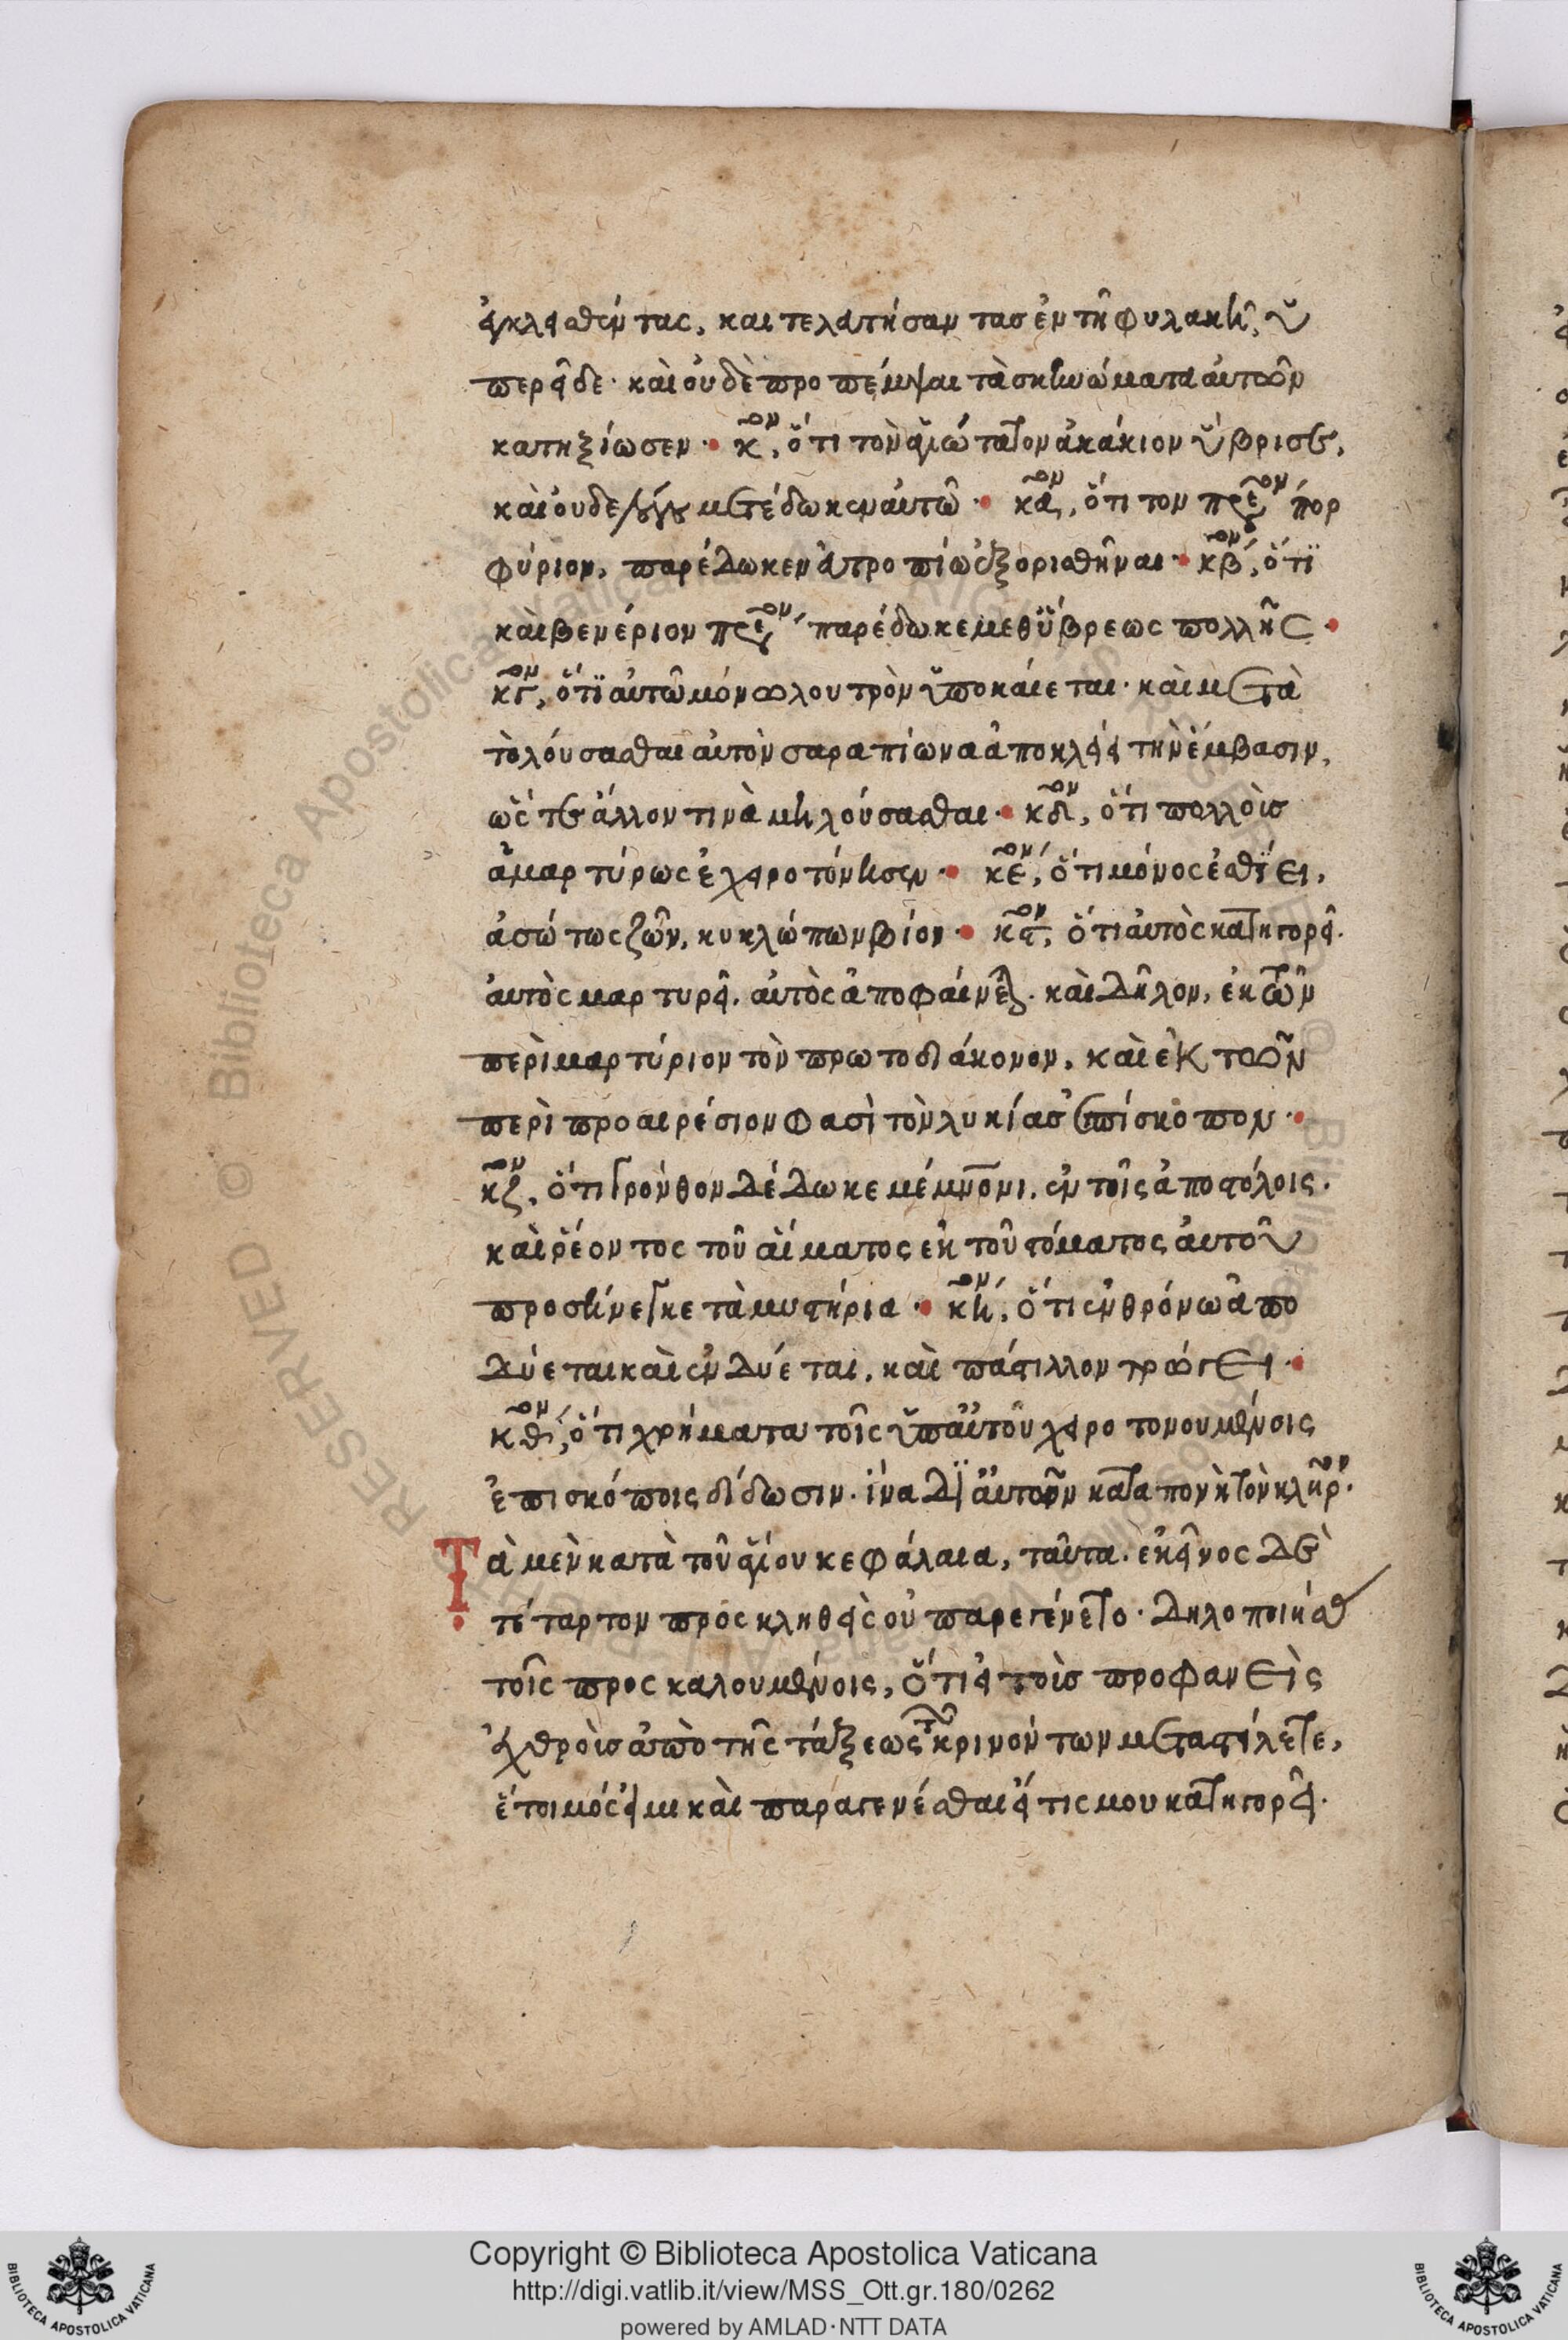 ἐγκλεισθέντας, και τελευτήσαντασ ἐν τῆ φυλακῆ, ὑ
περεῖδε· καὶ οὐδὲ προπέμψαι τὰ σκηνώματα αὐτῶν
κατηξίωσεν · κ^ον, ὅτι τὸν ἁγιώτατον ἀκάκιον ὕβρισε,
καὶ οὐδε λόγου μετέδωκεν αὐτῶ · κα^ον, ὅτι τον πρε^ον πορ
φύριον, παρέδωκεν εὐτροπίω ἐξορισθῆναι · κβ^ον, ὅτϊ
καὶ βενέριον πρε^ον παρέδωκε μεθ ὕβρεως πολλῆς ·
κγ^ον, ὅτϊ αὐτῶ μόνω λουτρὸν ὑποκαίεται· καὶ μετὰ
τὸ λόυσασθαι αὐτὸν σαραπίων ἀποκλείει τὴν ἔμβασιν,
ὥς τε ἄλλον τινὰ μὴ λούσασθαι · κδ^ον, ὅτι πολλοὶσ
ἀμαρτύρως ἐχειροτόνησεν · κε^ον, ὅτι μόνος ἐσθΐει,
ἀσώτως ζῶν, κυκλώπων βίον · κϛ^ον, ὅτι αὐτὸς κατηγορεῖ.
ἀυτὸς μαρτυρεῖ, αὐτὸς ἀποφαίνεται. καὶ δῆλον, ἐκ τῶν
περὶ μαρτύριον τὸν πρωτοδιάκονον, καὶ ἐκ τῶν
περὶ προαιρέσιον φασὶ τὸν λυκίασ ἐπίσκοπον ·
κζ^ον, ὅτι γρόνθον δέδωκε μέμνονι, ἐν τοῖς ἀποστόλοις.
καὶ ῥέοντος τοῦ αἵματος ἐκ τοῦ στόματος ἀυτοῦ
προσήνεγκε τὰ μυστήρια · κη^ον, ὅτι ἐν θρόνω ἀπο
δύεται καὶ ἐνδύεται, καὶ πάστιλλον τρώγει ·
κθ^ον, ὅτι χρήματα τοῖς ὑπ αὐτοῦ χειροτονουμένοις
ἐπισκόποις δίδωσιν. ἵνα δϊ αὐτῶν καταπονῆ τὸν κλῆρ^ον.
Τὰ μὲν κατὰ τοῦ ἁγίου κεφάλαια, ταῦτα. ἐκεῖνος δὲ
τέταρτον πρὸς κληθεὶς οὐ παρεγένετο· δηλοποιήσας
τοῖς προς καλουμένοις, ὅτι εἰ τοὶσ προφανεὶς
ἐχθροὶσ ἀπὸ τῆς τάξεως τῶν κρινόντων μεταστείλετε,
ἕτοιμός εἰμι καὶ παραγενέσθαι εἴ τις μου κατηγορεῖ.
Copyright © Biblioteca Apostolica Vaticana
http://digi.vatlib.it/view/MSS_Ott.gr.180/0262
powered by AMLAD·NTT DATA